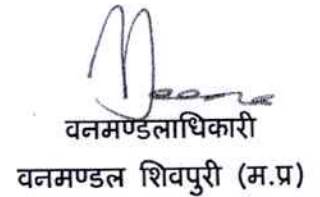 वनमण्डलाधिकारी
वनमण्डल शिवपुरी (म.प्र)